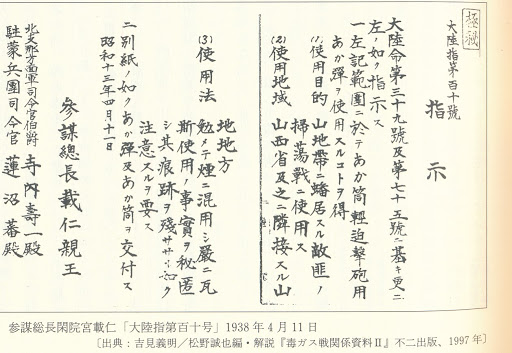 極秘
大陸指第百十號
指示
大陸命第三十九號及第七十五號ニ基キ更ニ
左ノ如ク指示ス
一 左記範圍ニ於テあか筒輕迫撃砲用
あか彈ヲ使用スルコトヲ得
(1) 使用目的 山地帶ニ蟠居スル敵匪ノ
掃蕩戰ニ使用ス
(2) 使用地域 山西省及之ニ隣接スル山
地地方
(3) 使用法 勉メテ煙ニ混用シ嚴ニ瓦
斯使用ノ事實ヲ秘匿
シ其痕跡ヲ殘サザル如ク
注意スルヲ要ス
二 別紙ノ如クあか彈及あか筒ヲ交付ス
昭和十三年四月十一日
參謀總長載仁親王
北支那方面軍司令官伯爵 寺内壽一殿
駐蒙兵團司令官 蓮沼蕃殿
参謀総長閑院宮載仁「大陸指第百十号」1938年4月11日
〔出典:吉見義明/松野誠也編・解説『毒ガス戦関係資料Ⅱ』不二出版、1997年〕